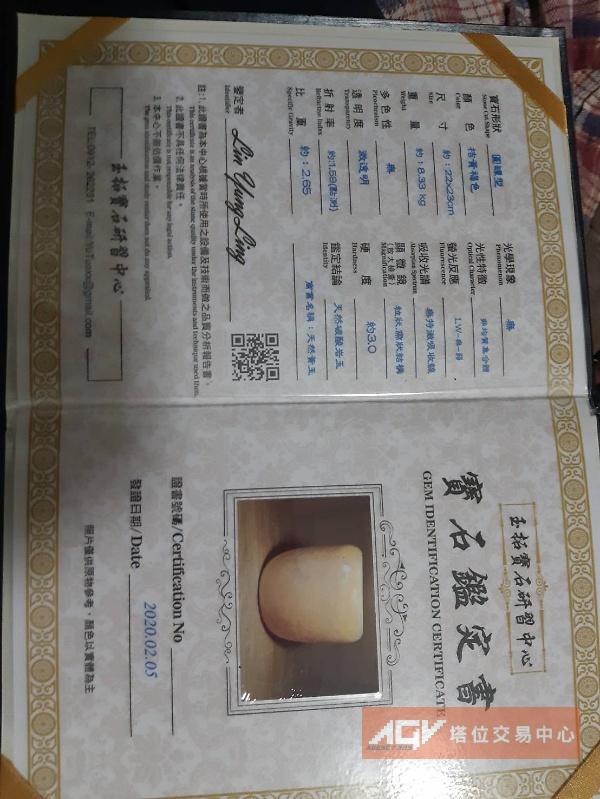 寶石形狀 圓罐型
Stone Cut Shape
顏色 桔青褐色
Color
尺寸 約:22x23cm
Size
重量 約:8.33 kg
Weight
多色性 無
Pleochroism
透明度 微透明
Transparency
折射率 約:1.59(點測)
Refractive Index
比重 約:2.65
Specific Gravity
鑒定者 Lin Yung Ling
Identifier
光學現象 無
Phenomenon
光性特徵 非均質集合體
Optical Character
螢光反應
Fluorescence
吸收光譜 無特徵吸收線
Absorption Spectrum
顯微鏡
(放大檢查)
Magnification
硬度 約3.0
Hardness
鑑定結論 天然碳酸岩玉
Identity
商業名稱:天然黃玉
註:1. 此證書為本中心根據當時所使用之設備及技術而做之品質分析報告書。
This certificate is an analysis of the stone quality under the instruments and technique used then.
2. 此證書不具任何法律責任。
This certificate is not responsible for any legal action.
3. 本中心不做估價作業。
The gem identification and study center does not do any appraisal.
玉拓寶石研習中心
玉拓寶石研習中心
寶石鑑定書
GEM IDENTIFICATION CERTIFICATE
證書號碼/Certification No
發證日期/Date 2020.02.05
照片僅供原物參考，顏色以實體為主
AGV 塔位交易中心